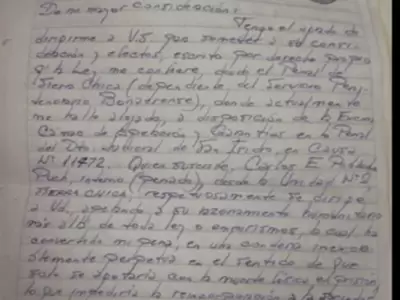 De mi mayor consideración:
Tengo el agrado de
dirigirme a V.S. que someter a su consi-
deración y efectos, escrito por derecho propio
q' la Ley me confiere, desde el Penal de
Sierra Chica (dependiente del Servicio Peni-
tenciario Bonaerense), donde actualmente
me hallo alojado, a disposición de la Exma.
Cámara de Apelación y Garantías en lo Penal
del Dto. Judicial de San Isidro, en Causa
Nº 11472. Quien suscribe, Carlos E. Robledo
Puch, interno (penado), desde la Unidad Nº 2
SIERRA CHICA, respetuosamente se dirige
a Ud., apelando a su razonamiento humanitario
más allá de toda ley o eufemismos, la cual ha
convertido mi pena, en una condena inexora-
blemente perpetua en el sentido de que
solo se agotaría con la muerte física en prisión,
lo que impediría la